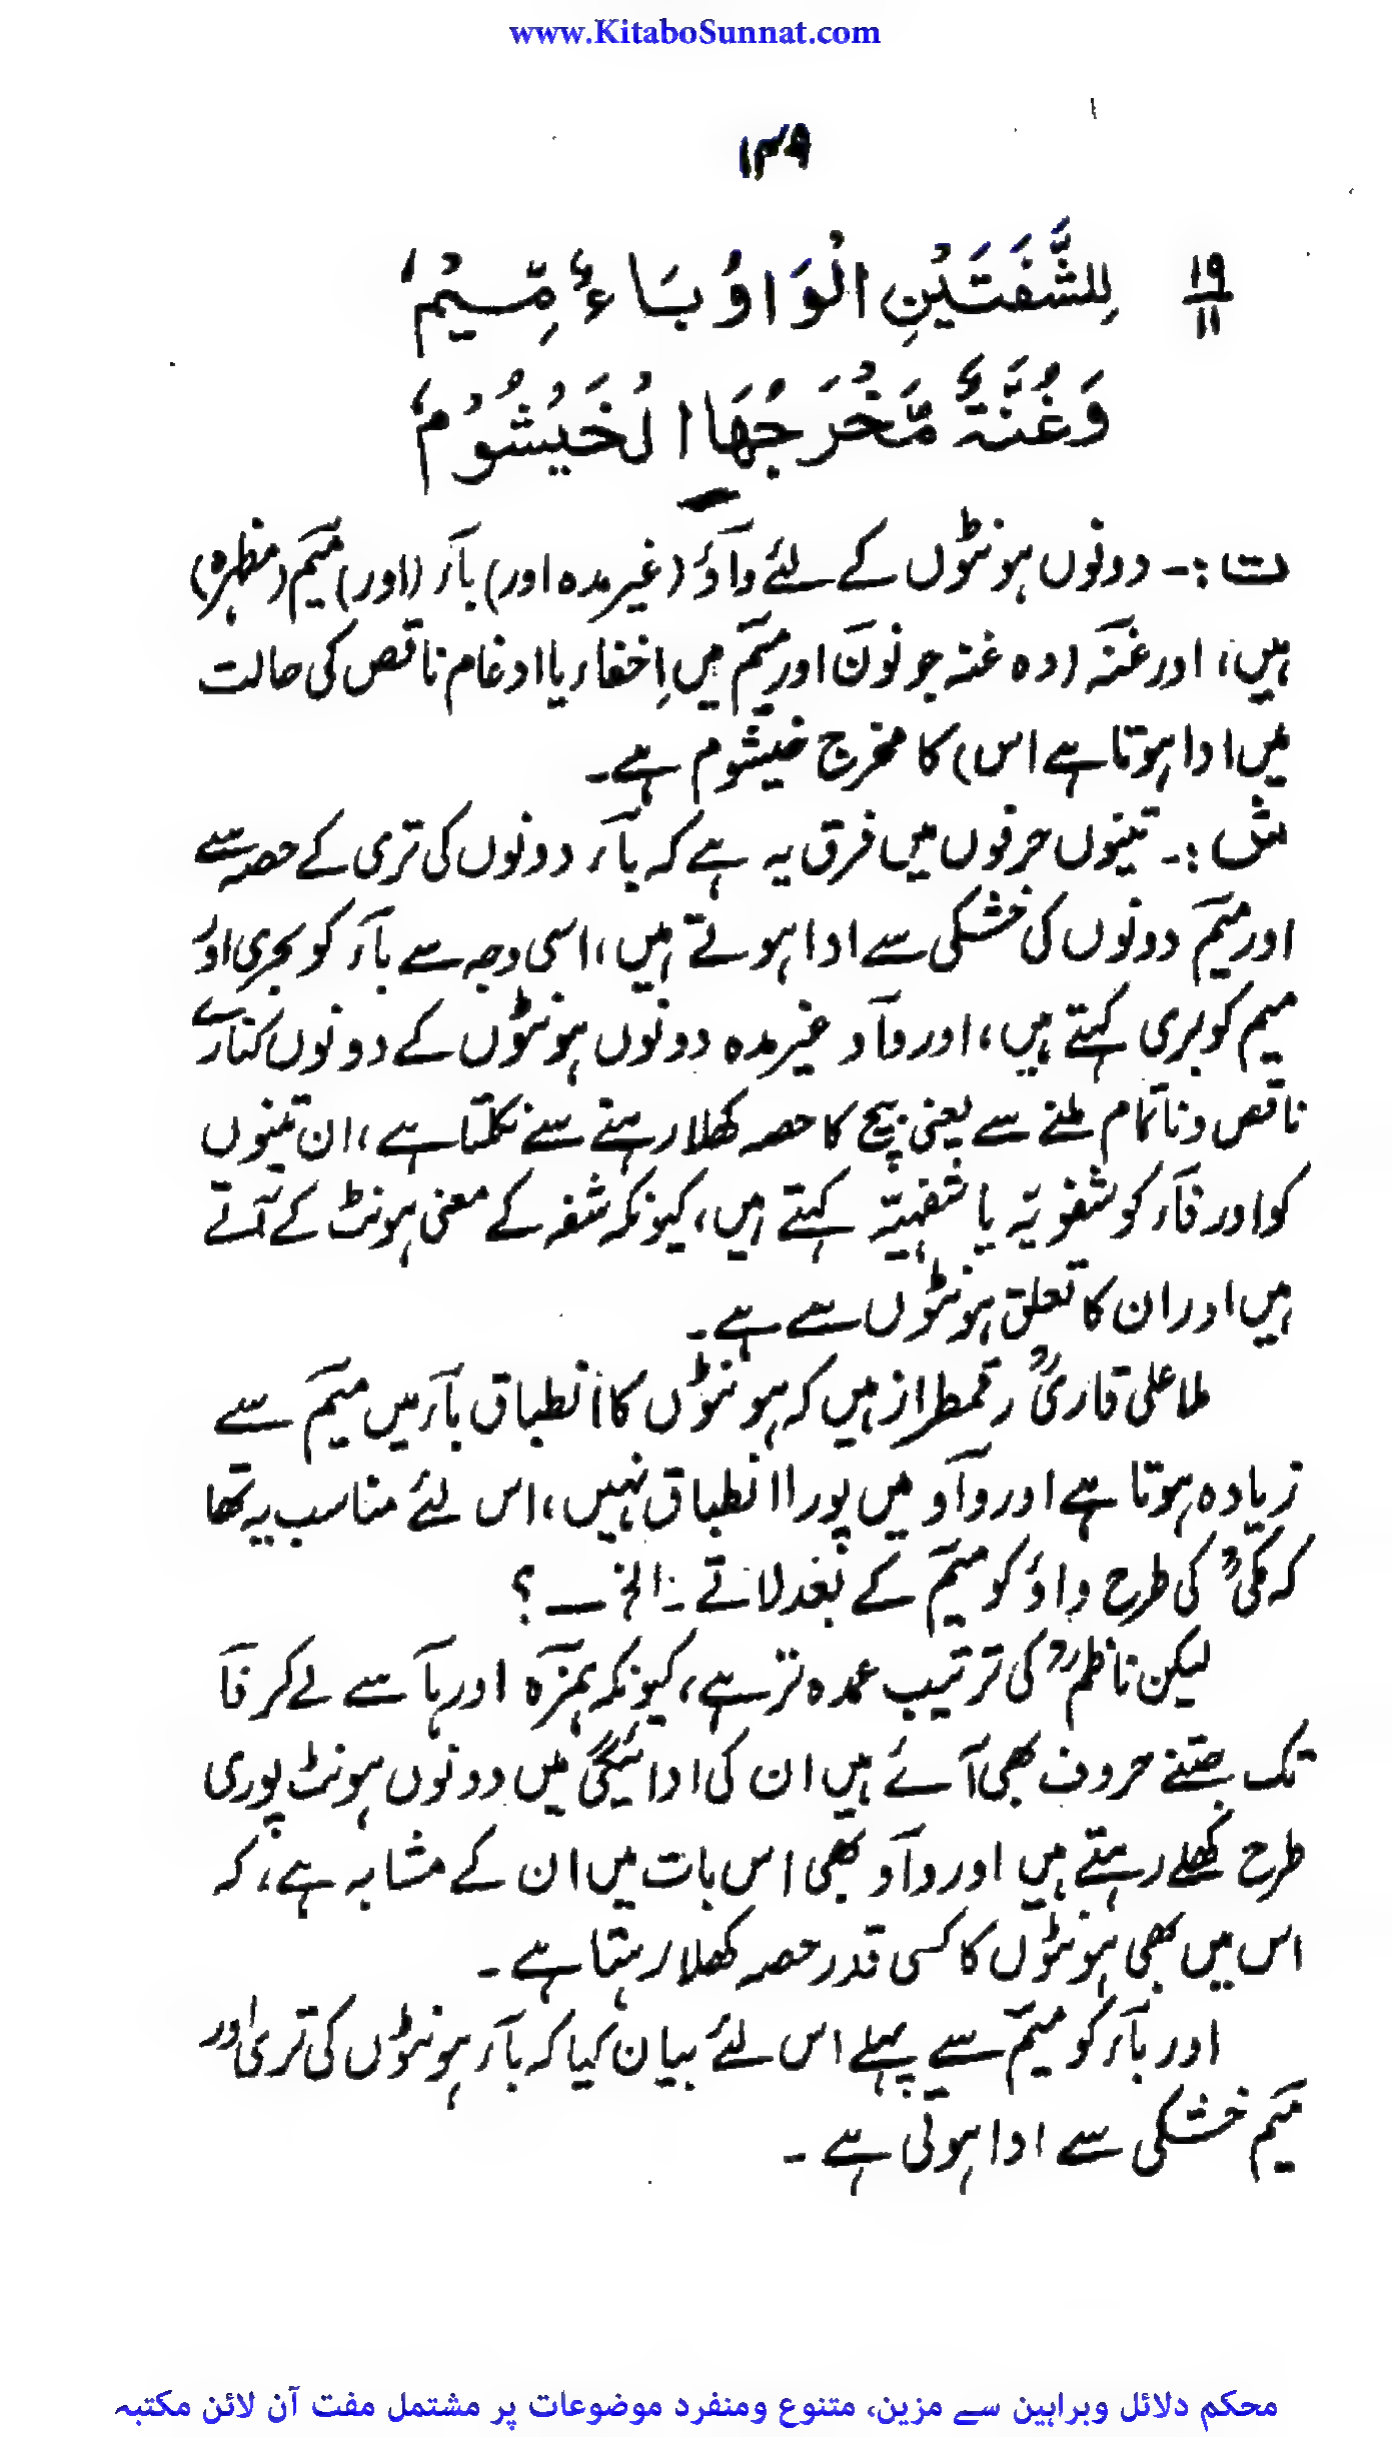 www.KitaboSunnat.com
۱۳۹
۱۹
۱۱
لِلشَّفَتَيْنِ الْوَاوُ بَاءٌ مِّيْمٌ
وَغُنَّةٌ مَّخْرَجُهَا الْخَيْشُوْمُ
ت :۔ دونوں ہونٹوں کے لئے واؤ (غیر مدہ اور) باء (اور) میم (مظہرہ)
ہیں، اور غنہ (وہ غنہ جو نون اور میم میں اِخفاء یا ادغام ناقص کی حالت
میں ادا ہوتا ہے اس) کا مخرج خیشوم ہے۔
ش :۔ تینوں حرفوں میں فرق یہ ہے کہ باء دونوں کی تری کے حصہ سے
اور میم دونوں کی خشکی سے ادا ہوتے ہیں، اسی وجہ سے باء کو بحری اور
میم کو بری کہتے ہیں، اور واو غیر مدہ دونوں ہونٹوں کے دونوں کنارے
ناقص و ناتمام ملنے سے یعنی بیچ کا حصہ کھلا رہنے سے نکلتا ہے، ان تینوں
کو اور فاء کو شفویہ یا شفہیّہ کہتے ہیں، کیونکہ شفہ کے معنی ہونٹ کے آتے
ہیں اور ان کا تعلق ہونٹوں سے ہے۔
ملا علی قاریؒ رقمطراز ہیں کہ ہونٹوں کا انطباق باء میں میم سے
زیادہ ہوتا ہے اور واو میں پورا انطباق نہیں، اس لئے مناسب یہ تھا
کہ مکیؒ کی طرح واؤ کو میم کے بعد لاتے۔ الخ — ؟
لیکن ناظمؒ کی ترتیب عمدہ تر ہے، کیونکہ ہمزہ اور ہا سے لے کر فا
تک جتنے حروف بھی آئے ہیں ان کی ادائیگی میں دونوں ہونٹ پوری
طرح کھلے رہتے ہیں اور واو بھی اس بات میں ان کے مشابہ ہے، کہ
اس میں بھی ہونٹوں کا کسی قدر حصہ کھلا رہتا ہے۔
اور باء کو میم سے پہلے اس لئے بیان کیا کہ باء ہونٹوں کی تری اور
میم خشکی سے ادا ہوتی ہے۔
محکم دلائل وبراہین سے مزین، متنوع ومنفرد موضوعات پر مشتمل مفت آن لائن مکتبہ